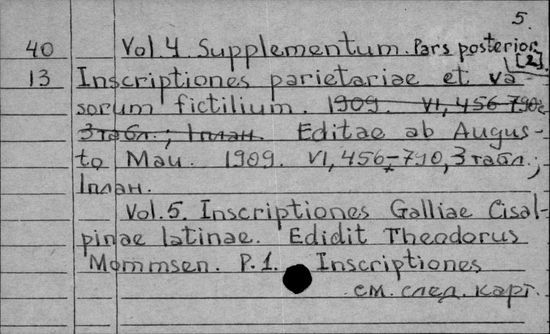 5.
40 Vol.4. Supplementum. Pars posterior
[2].
13 Inscriptiones parietariae et va
sorum fictilium. 1909. VI, 456-790с
3табл.; 1план. Editae ab Augus-
to Mau. 1909. VI, 456-790, 3табл.;
1план.
Vol.5. Inscriptiones Galliae Cisal-
pinae latinae. Edidit Theodorus
Mommsen. P.1. Inscriptiones
см. след. карт.